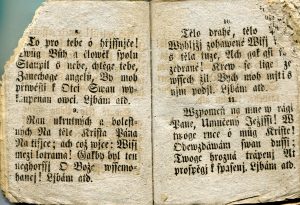 8.
To pro tebe ó hřissnjče!
Žiwý Bůh a člowěk spolu
Staupil s nebe, chlége tebe,
Zanechage angelů, By moh
priwésti k Otci Swau wy-
kaupenau owci. Ljbám atd.
9.
Ran ukrutných a bolest-
ných Na těle Krista Pána
Na tisjce; ach což wjce: Wisý
mezi lotrama! Gakby byl ten
neghorssj O Bože wssemo-
hancý! Ljbám atd.
10.
Tělo drahé, tělo
Wyblitý zohawené Wisý
s těla kůže, Ach gak gsi
zedrané! Krew se lige ze
wssech žil. Bych moh mjti s
njm podjl. Ljbám atd.
11.
Wzpomeň na mne w rági
Pane, Umučený Ježjssi! W
twoge ruce ó můg Kriste!
Odewzdáwám swau dussi:
Twoge hrozná trápenj At
prospěgj k spasenj. Ljbám atd.